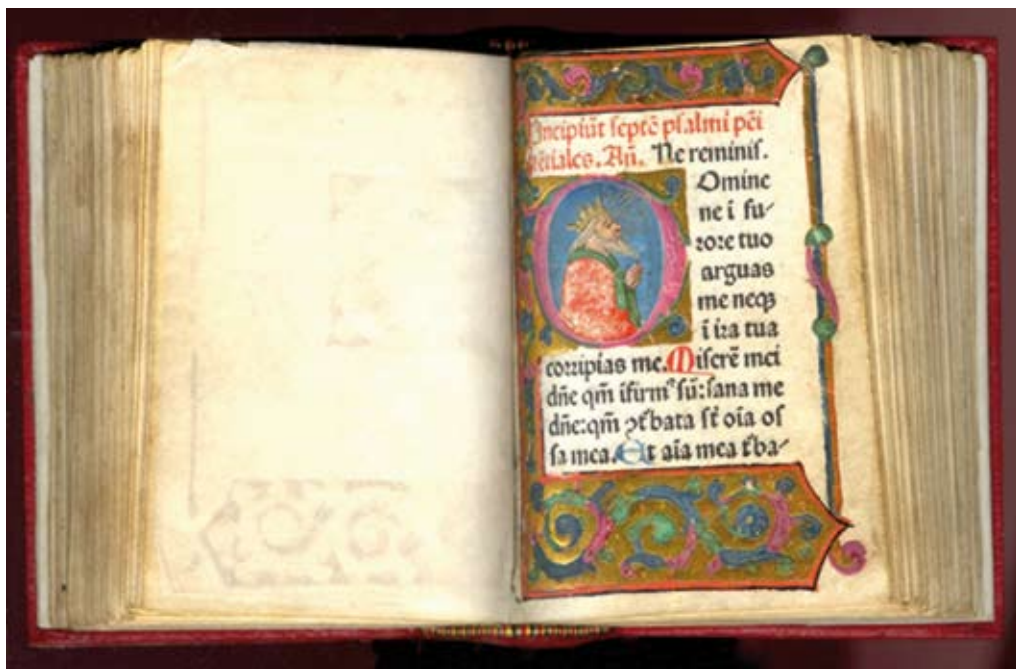 Incipiūt septē psalmi pēi
tētiales. Añ. Ne reminis.
Omine
ne ī fu-
rore tuo
arguas
me neqꝫ
ī ira tua
corripias me. Miserē mei
dn̄e qm̄ īfirmꝰ sū: sana me
dn̄e: qm̄ ꝯt᷑bata st̄ oīa os
sa mea. Et aīa mea t᷑ba-